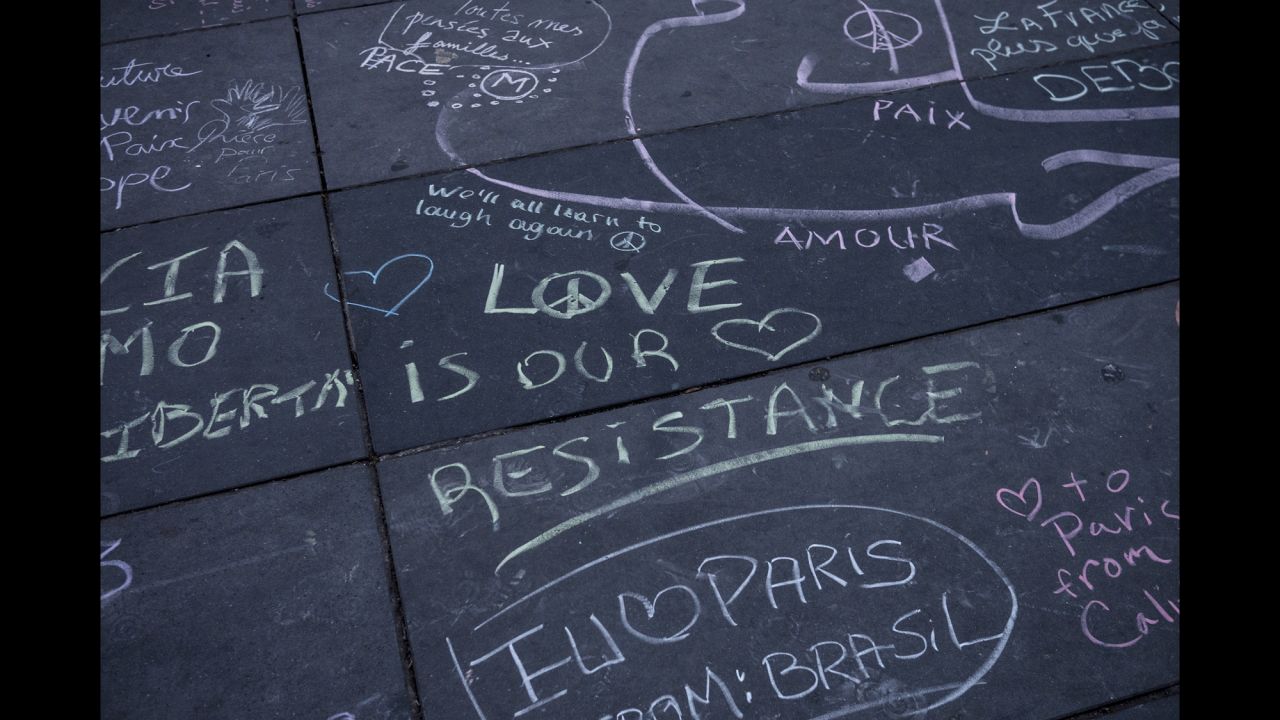 Toutes mes
pensées aux
familles...
PEACE
M
uture
venir
Paix
ope
Prière
pour
Paris
PAIX
LA FRANCE
plus que
DEBO
We'll all learn to
laugh again
AMOUR
CIA
MO
IBERTA'
LOVE
is OUR
RESISTANCE
to
Paris
from
Cali
EU PARIS
FROM: BRASIL